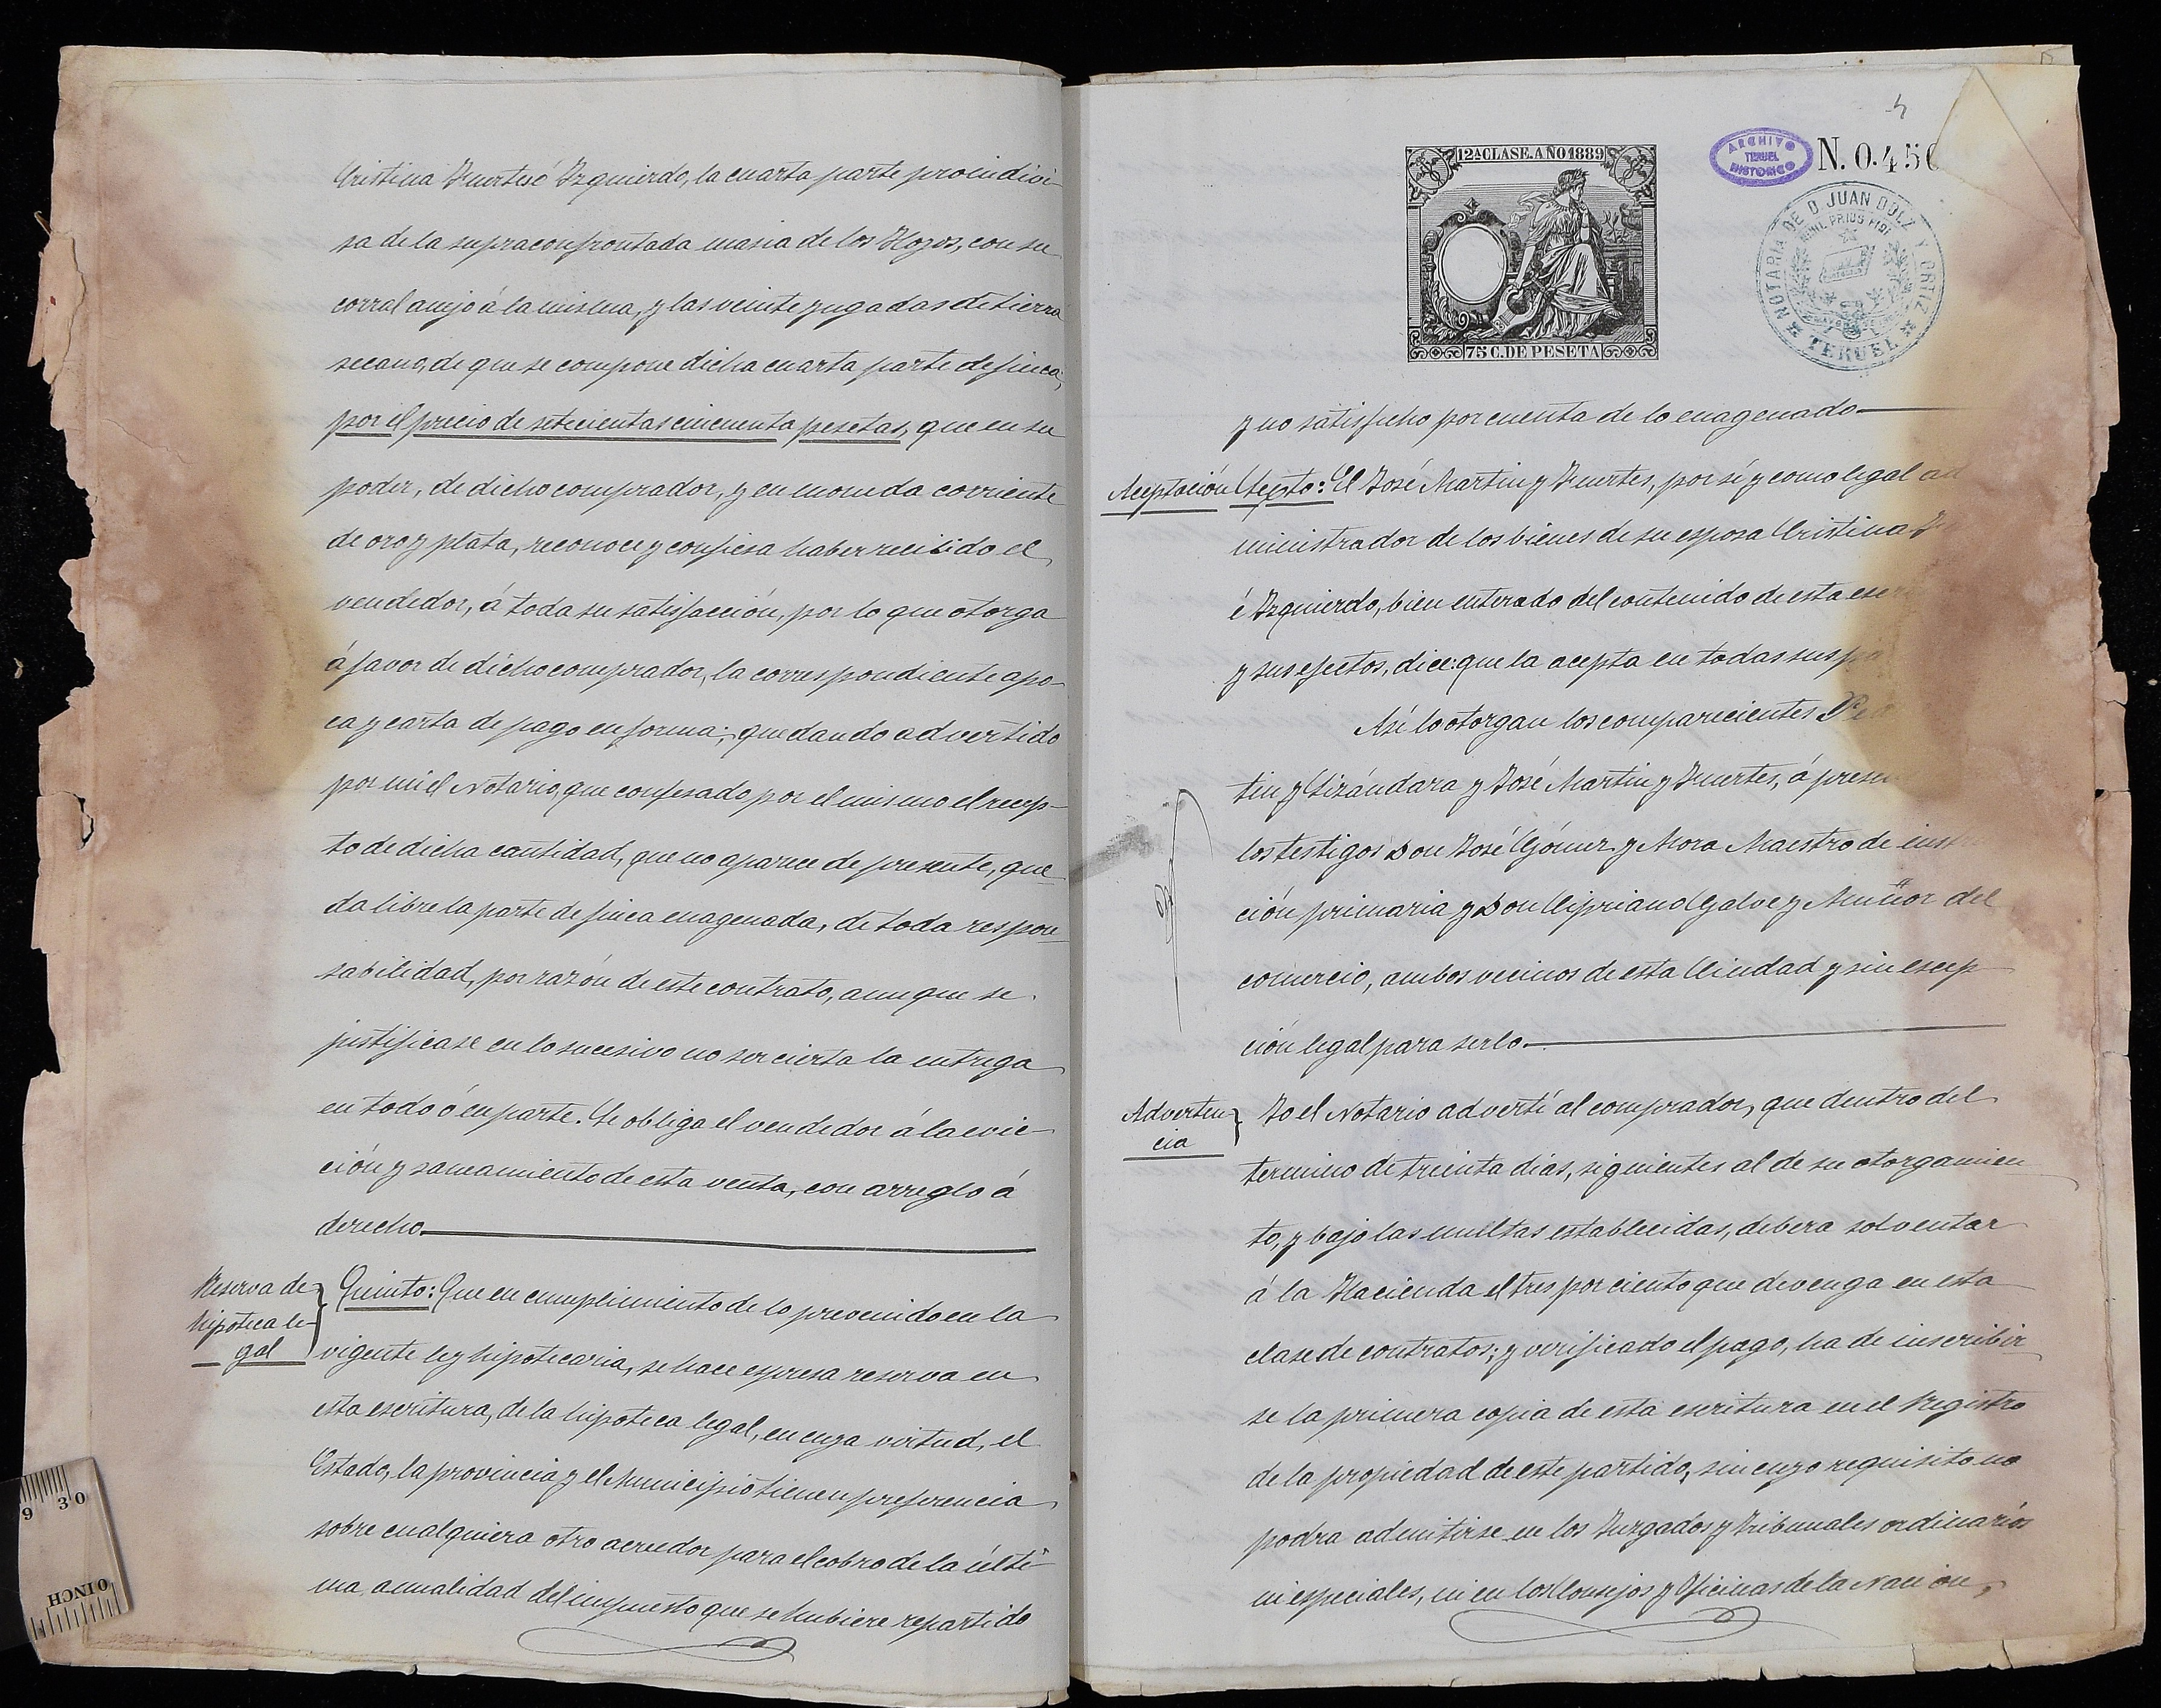 Cristina Fuertes é Izquierdo, la cuarta parte proindivi-
sa de la supraconfrontada masia de los Hoyos, con su
corral anejo á la misma, y las veinte yugadas de tierra
secano, de que se compone dicha cuarta parte de finca,
por el precio de setecientas cincuenta pesetas, que en su
poder, de dicho comprador, y en moneda corriente
de oro y plata, reconoce y confiesa haber recibido el
vendedor, á toda su satisfacción, por lo que otorga
á favor de dicho comprador, la correspondiente apo-
ca y carta de pago en forma; quedando advertido
por mi el Notario, que confesado por el mismo el recep-
to de dicha cantidad, que no aparece de presente, que-
da libre la parte de finca enagenada, de toda respon-
sabilidad, por razón de este contrato, aunque se
justificase en lo sucesivo no ser cierta la entrega
en todo ó en parte. Se obliga el vendedor á la evic-
ción y saneamiento de esta venta, con arreglo á
derecho.
Reserva de
hipoteca le-
gal
Quinto: Que en cumplimiento de lo prevenido en la
vigente ley hipotecaria, se hace espresa reserva en
esta escritura, de la hipoteca legal, en cuya virtud, el
Estado, la provincia y el Municipio tienen preferencia
sobre cualquiera otro acreedor para el cobro de la últi-
ma anualidad del impuesto que se hubiere repartido
9 30
0INCH
5
12ª CLASE. AÑO 1889
75 C. DE PESETA
ARCHIVO
TERUEL
HISTORICO
N. 0.450
NOTARIA DE D. JUAN DOLZ Y ORTIZ
NIHIL PRIUS FIDE
TERUEL
y no satisfecho por cuenta de lo enagenado
Aceptación
Sexto: El José Martin y Fuertes, por sí y como legal ad
ministrador de los bienes de su esposa Cristina F
é Izquierdo, bien enterado del contenido de esta escr
y sus efectos, dice: que la acepta en todas sus pa
Así lo otorgan los comparecientes
tin y Lizándara y José Martin y Fuertes, á presen
los testigos Don José Gómez y Mora Maestro de inst
ción primaria y Don Cipriano Galve y Muñoz del
comercio, ambos vecinos de esta Ciudad y sin escep
ción legal para serlo.
Adverten
cia
Yo el Notario advertí al comprador, que dentro del
termino de treinta dias, siguientes al de su otorgamien
to, y bajo las multas establecidas, debera solventar
á la Hacienda el tres por ciento que devenga en esta
clase de contratos; y verificado el pago, ha de inscribir
se la primera copia de esta escritura en el Registro
de la propiedad de este partido, sin cuyo requisito no
podra admitirse en los Juzgados y Tribunales ordinarios
ni especiales, ni en los Consejos y Oficinas de la Nacion,